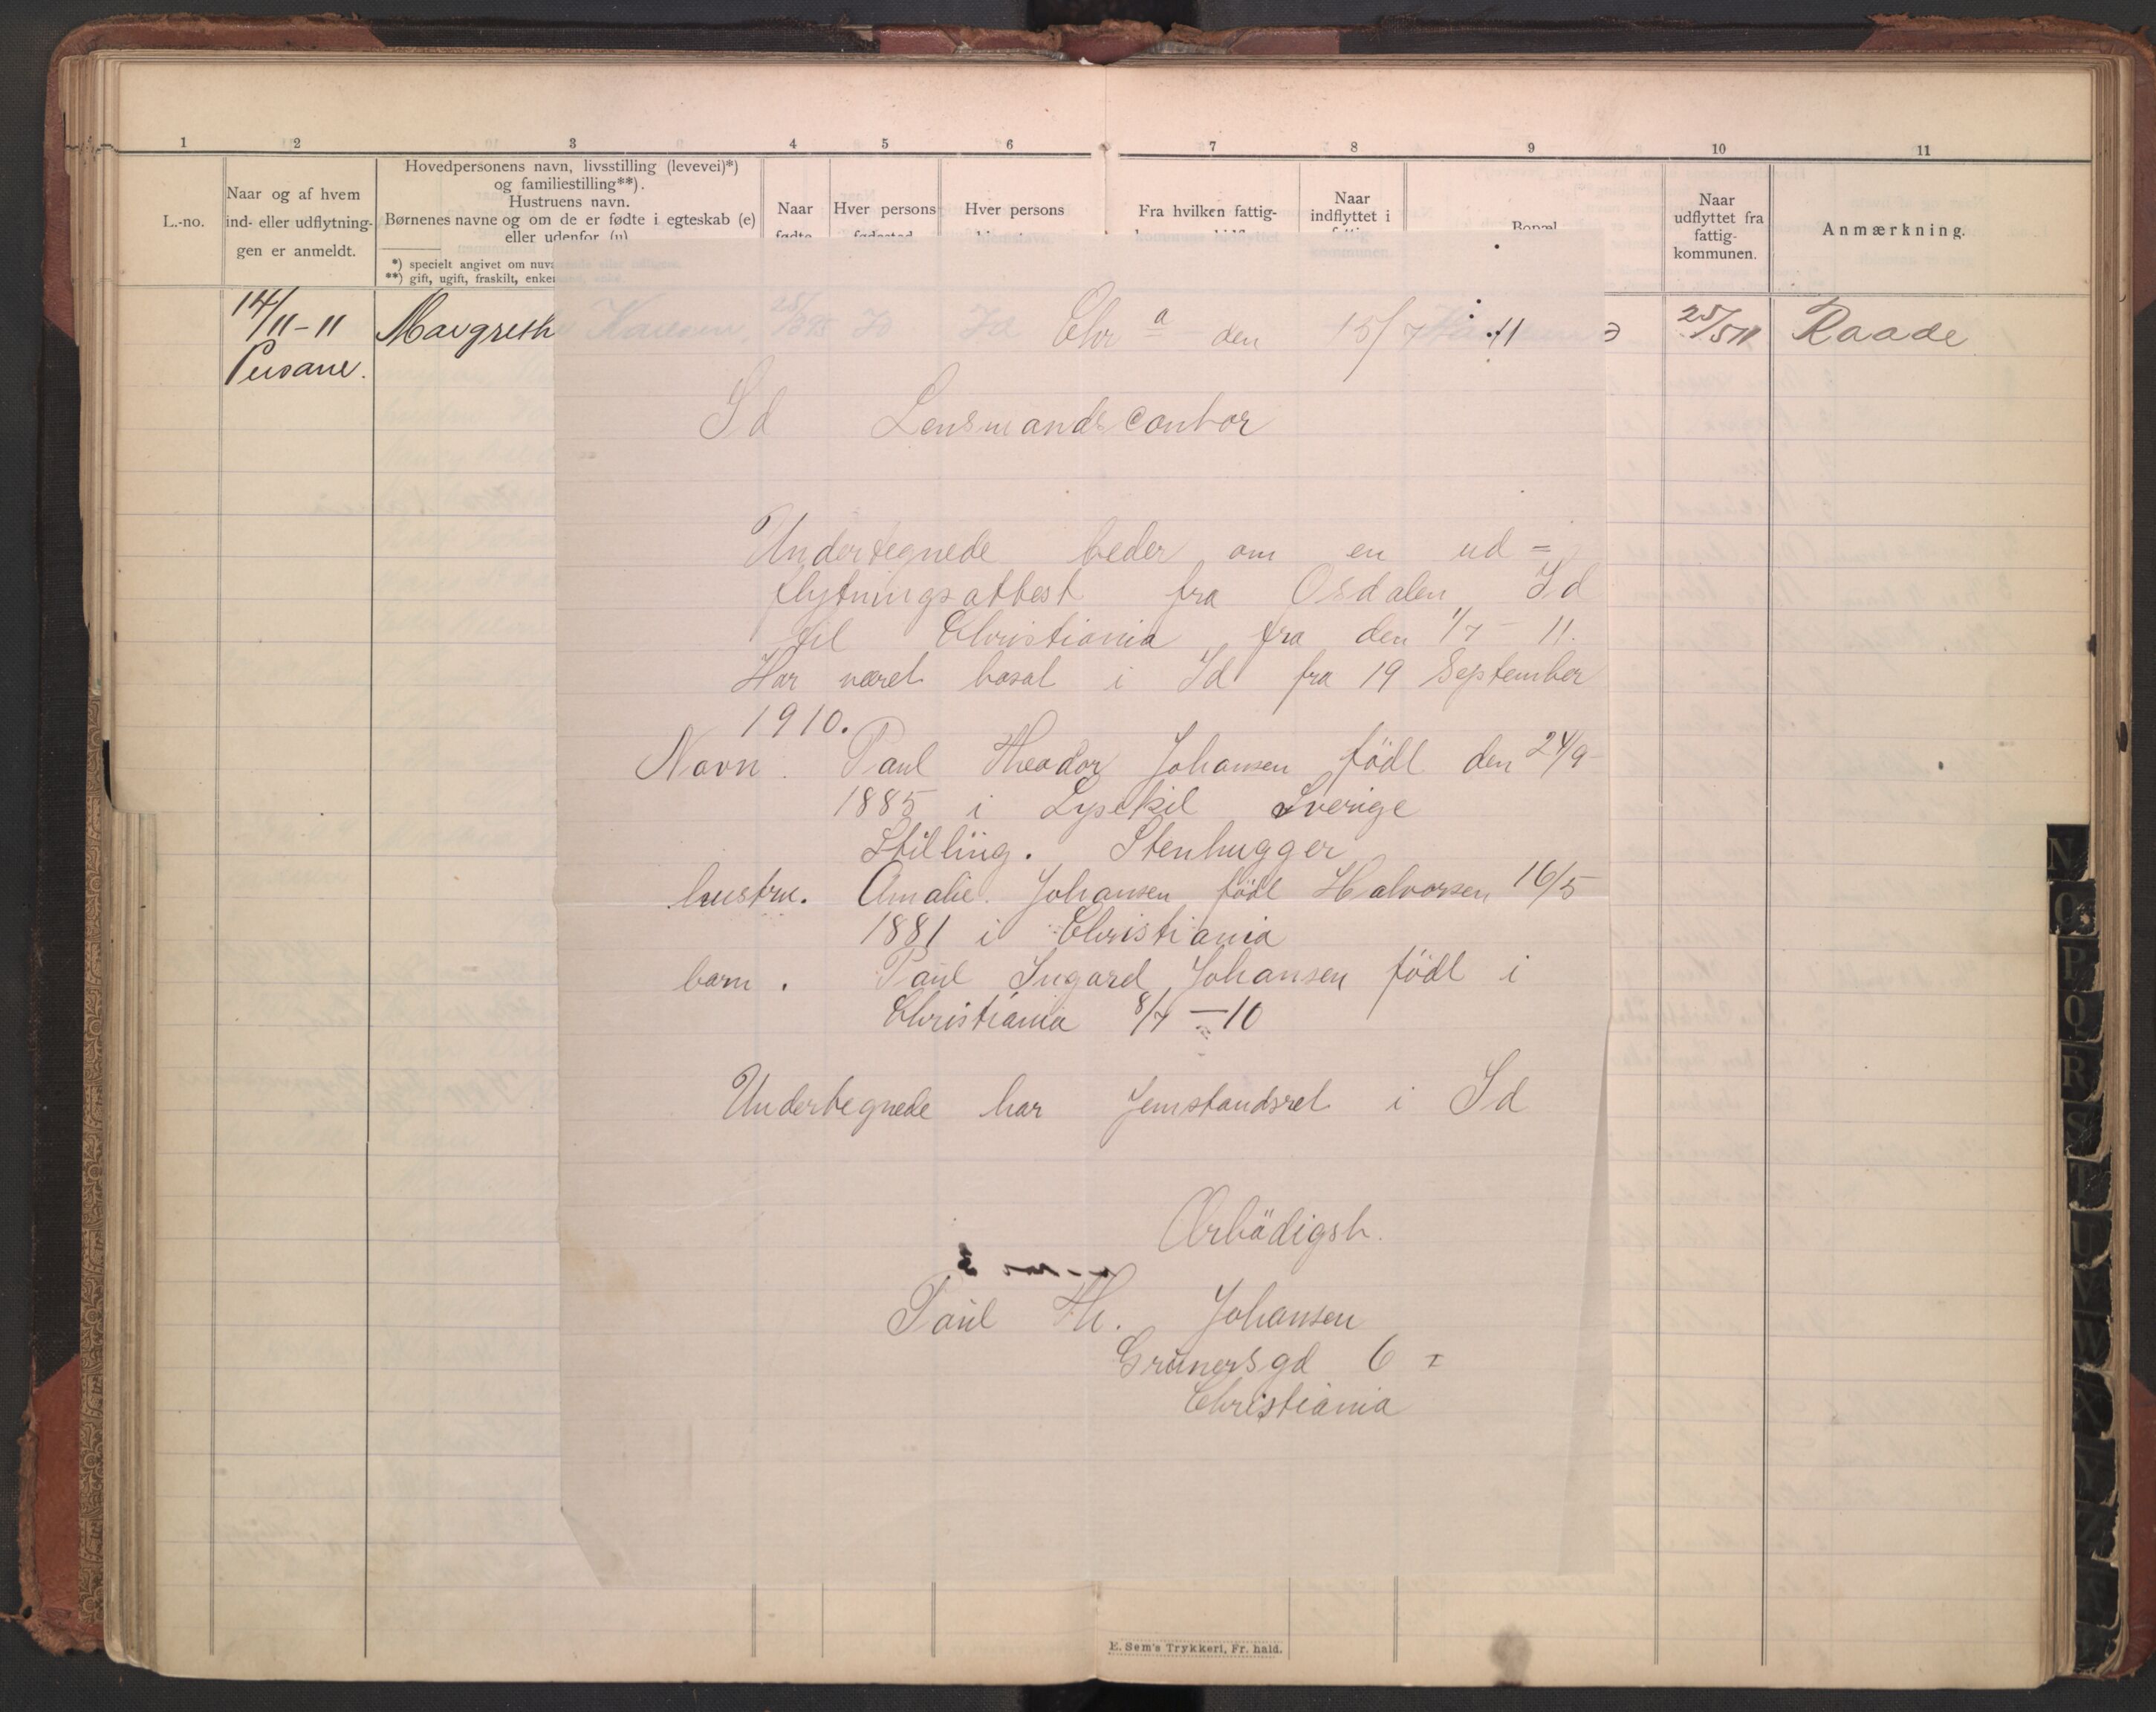 1 2 3 4 5 6 7 8 9 10 11
L.-no.
Naar og af hvem
ind- eller udflytnin-
gen er anmeldt.
Hovedpersonens navn, livsstilling (levevei)*)
og familiestilling**).
Hustruens navn.
Børnenes navne og om de er fødte i egteskab (e)
eller udenfor (u)
*) specielt angivet om nuv
**) gift, ugift, fraskilt, enke
Naar
fødte
Hver persons
fødested
Hver persons
Fra hvilken fattig-
Naar
indflyttet i
Bopæl
Naar
udflyttet fra
fattig-
kommunen.
Anmærkning.
14/11-11 Margreth 25/5 11 Raade
Chr a den 15/7 11
Id Lensmandscontor
Undertegnede beder om en ud=
flytningsattest fra Osdalen Id
til Christiania fra den 1/7 - 11.
Har været bosat i Id fra 19 September
1910.
Navn. Paul Theodor Johansen född den 24/9
1885 i Lysekil Sverige
Stilling. Stenhugger
hustru. Amalie Johansen född Halvorsen 16/5
1881 i Christiania
barn. Paul Ingard Johansen född i
Christiania 8/7 - 10
Undertegnede har jemstandsret i Id
Ærbödigst.
Paul Th. Johansen
Grünersgd 6 I
Christiania
E. Sem's Trykkeri, Fr. hald.
N
O
P
Q
R
S
T
U
V
W
X
Y
Z